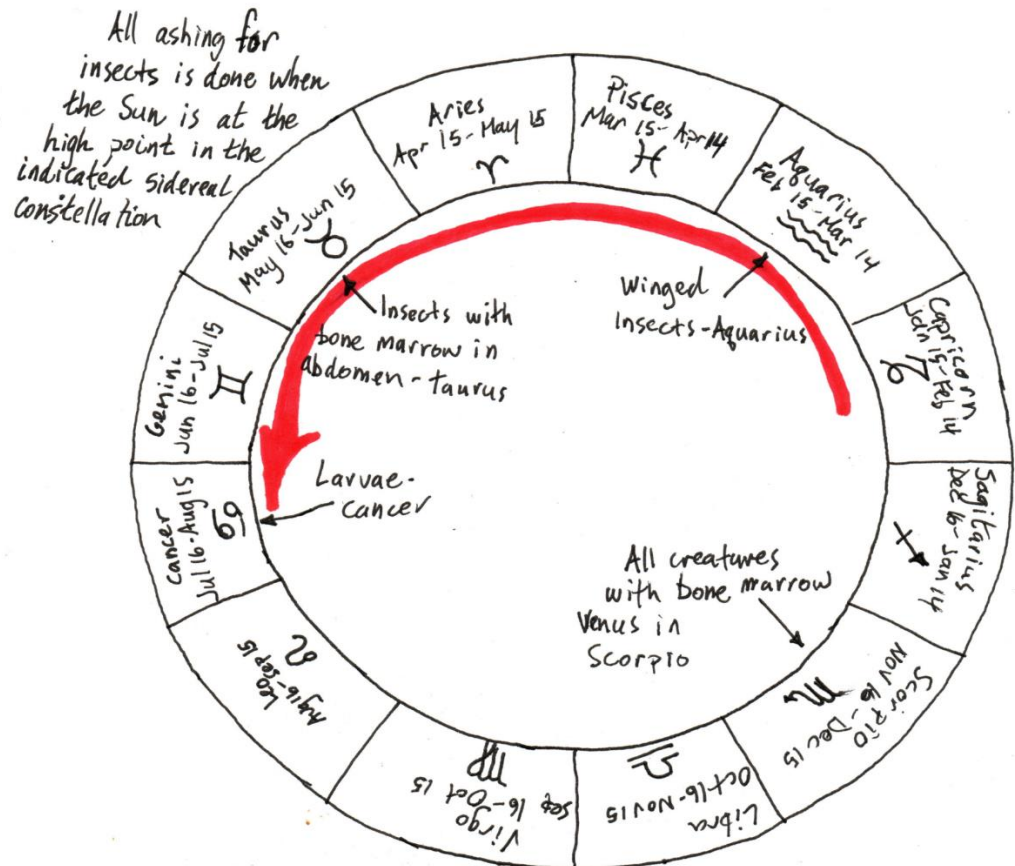 All ashing for
insects is done when
the Sun is at the
high point in the
indicated sidereal
constellation
Aries
Apr 15-May 15
♈
Pisces
Mar 15-Apr 14
♓
Aquarius
Feb 15-Mar 14
Capricorn
Jan 15-Feb 14
♑
Sagitarius
Dec 16-Jan 14
♐
Scorpio
Nov 16-Dec 15
♏
Libra
Oct 16-Nov 15
♎
Virgo
Sep 16-Oct 15
♍
Leo
Aug 16-Sep 15
♌
Cancer
Jul 16-Aug 15
♋
Gemini
Jun 16-Jul 15
♊
Taurus
May 16-Jun 15
♉
Insects with
bone marrow in
abdomen-taurus
Winged
Insects-Aquarius
Larvae-
cancer
All creatures
with bone marrow
Venus in
Scorpio